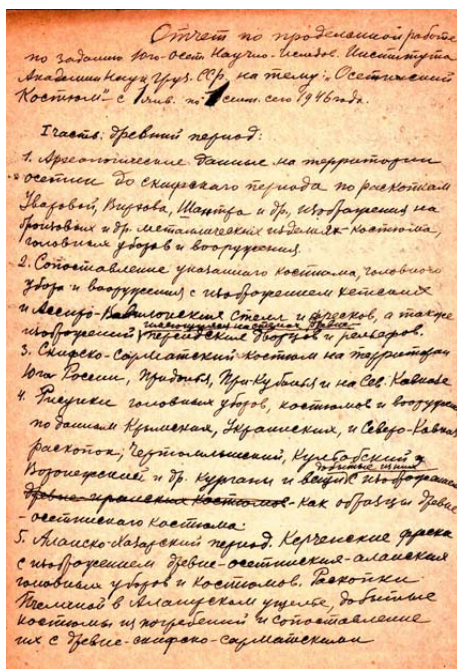 Отчет по проделанной работе
по заданию Юго-осет. Научно-Исслед. Института
Академии Наук Груз. ССР, на тему: "Осетинский
Костюм" – с 1 янв. по 1 сент. сего 1946 года.
I часть: древний период:
1. Археологические данные на территории
Осетии до скифского периода по раскопкам
Уваровой, Вирхова, Шантра и др., изображения на
бронзовых и др. металлических изделиях – костюма,
головных уборов и вооружения.
2. Сопоставление указанного костюма, головного
убора и вооружения с изображением
и Ассиро-Вавилонских стелл и фресков, а также
изображений персидских дворцов и рельефов.
3. Скифско-Сарматский костюм на территории
Юга России, Придонья, При-Кубанья и на Сев. Кавказе
4. Рисунки головных уборов, костюмов и вооруж
по данным Крымских, Украинских, и Северо-Кавказ
раскопок, Чертомлыцкий, Кульобский
добытые из них
Воронежский и др. курганы и вещих изображен
древне-иранских костюмов – как образцы древне
-осетинского костюма
5. Аланско-Хазарский период. Керченские фреска
с изображением древне-осетинских-аланских
головных уборов и костюмов. Раскопки
в Алагирском ущелье, добытые
костюмы из погребений и сопоставление
их с древне-скифско-сарматскими